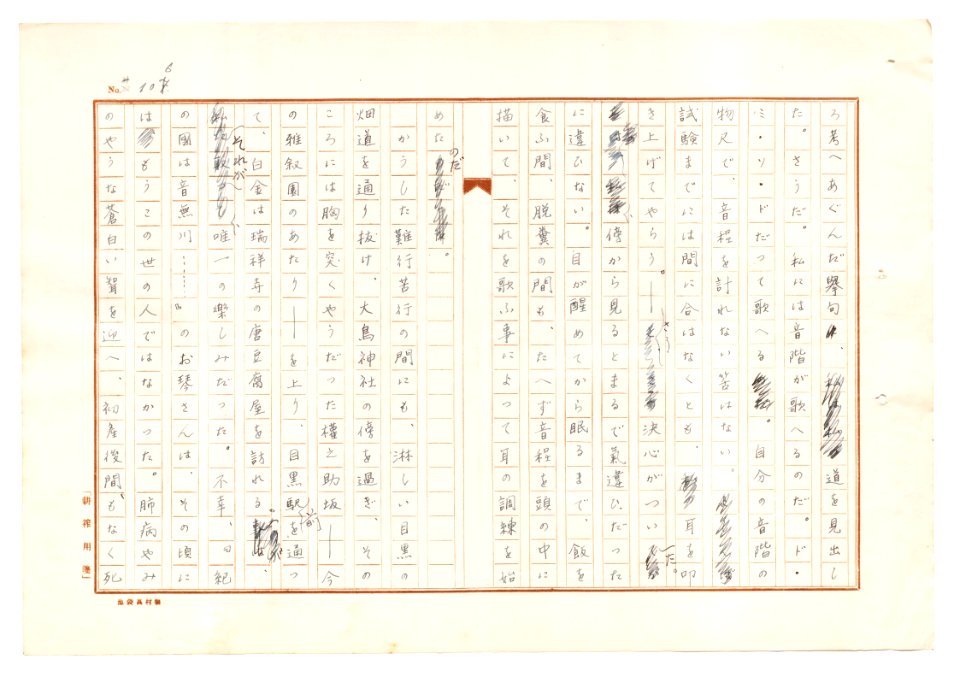 No. 10 6
ろ考へあぐんだ擧句、道を見出し
た。さうだ。私には音階が歌へるのだ。ド・
ミ・ソ・ドだつて歌へる。自分の音階の
物尺で、音程を計れない筈はない。
試驗までには間に合はなくとも、耳を叩
き上げてやらう。――さう決心がついた。
傍から見るとまるで氣違ひだつた
に違ひない。目が醒めてから眠るまで、飯を
食ふ間、脱糞の間も、たへず音程を頭の中に
描いて、それを歌ふ事によつて耳の調練を始
めたのだ。
かうした難行苦行の間にも、淋しい目黒の
畑道を通り抜け、大鳥神社の傍を過ぎ、その
ころには胸を突くやうだつた權之助坂――今
の雅叙園のあたり――を上り、目黒駅前を通つ
て、白金は瑞祥寺の唐豆腐屋を訪れる。
それが、唯一の樂しみだつた。不幸、『紀
の國は音無川……』のお琴さんは、その頃に
はもうこの世の人ではなかつた。肺病やみ
のやうな蒼白い聟を迎へ、初産後間もなく死